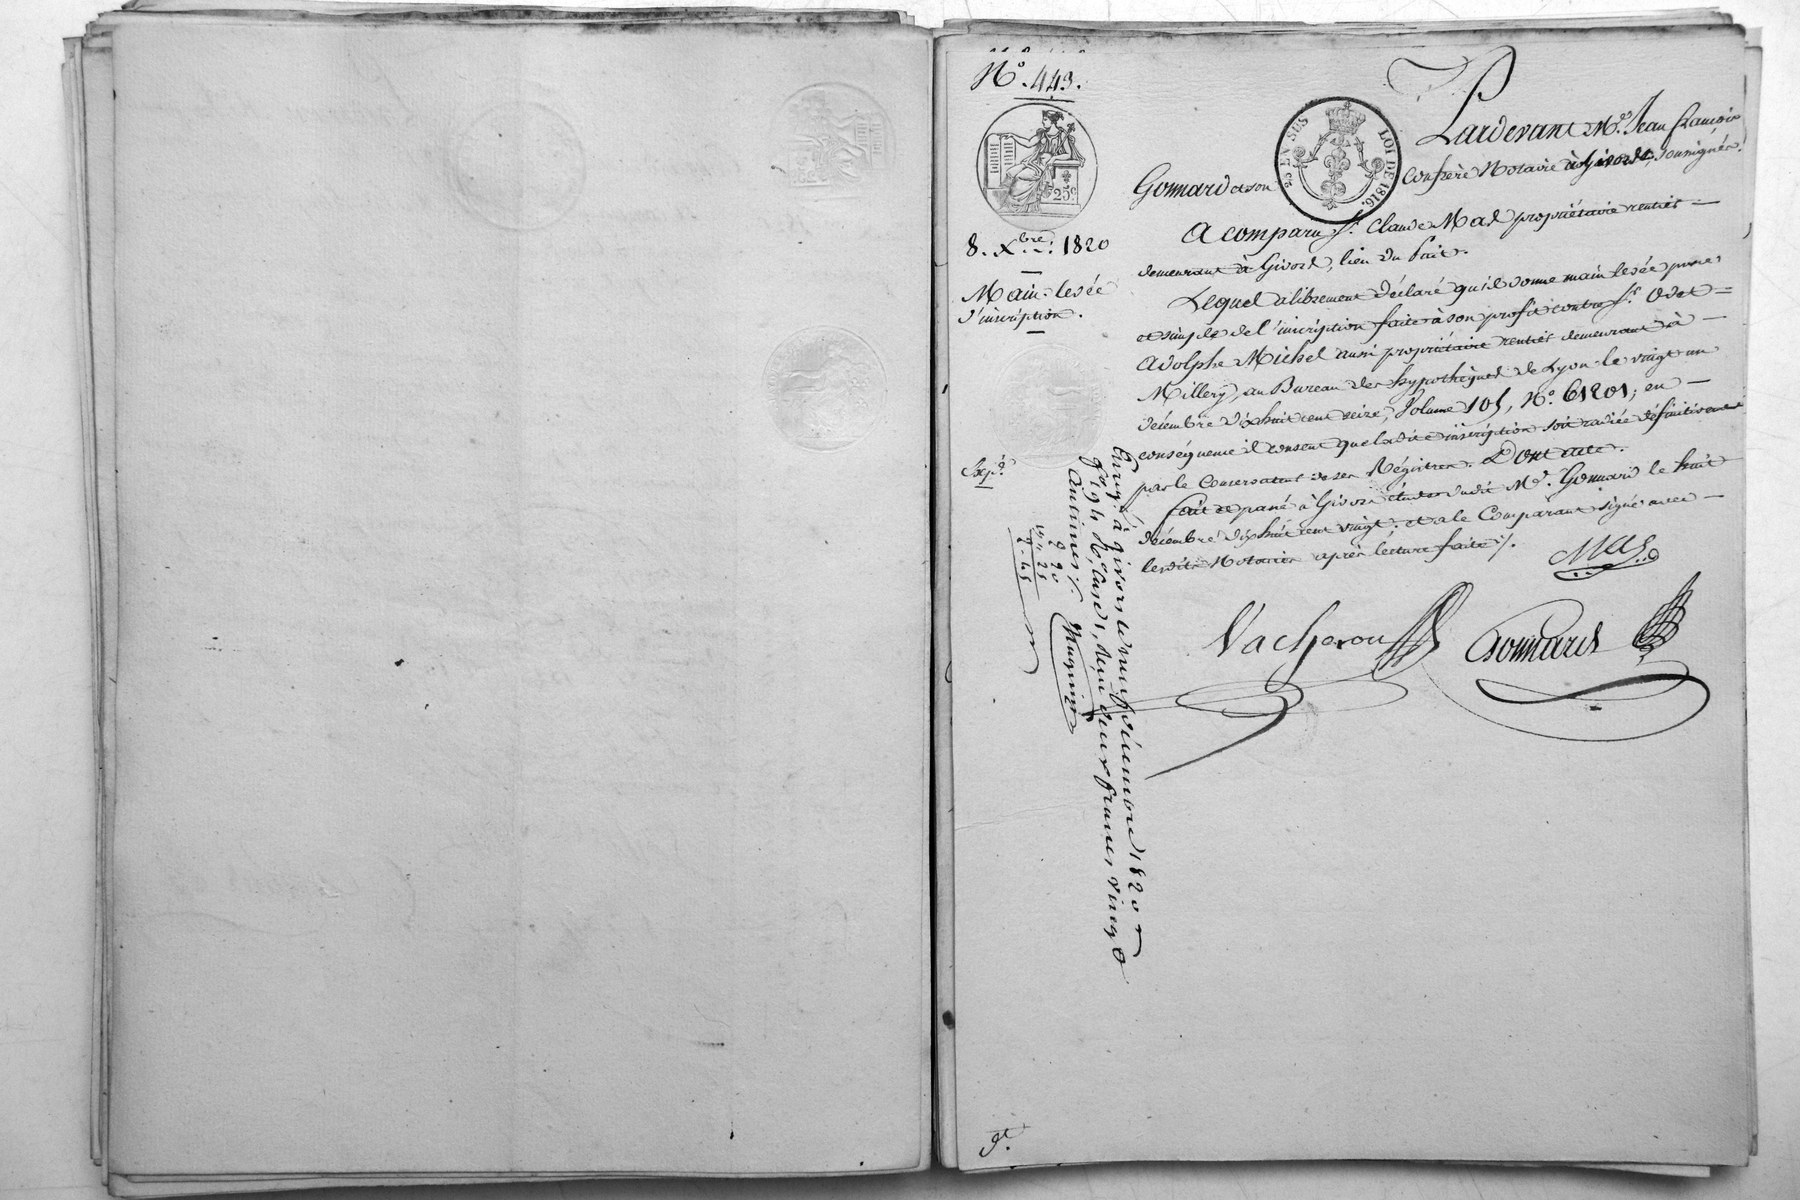 N.o 443.
25.c
25 EN SUS
LOI DE 1816.
8. Xbre. 1820
Main-levée
d'inscription.
Expé.
Pardevant Me. Jean françois
Gonnard et son Confrère Notaire à Givors, soussignés.
A comparu Sr. Claude Mas propriétaire rentier —
demeurant à Givors, lieu du fait.
Lequel a librement déclaré qu'il donne main levée pure
et simple de l'inscription faite à son profit contre Sr. Odet =
Adolphe Michel aussi propriétaire rentier demeurant à —
Millery, au Bureau des hypothèques de Lyon le vingt un
décembre dix huit cent seize, Volume 105, N.o 61201; en —
conséquence il consent que ladite inscription soit radiée définitivement
par le Conservateur de ses Régistres. Dont acte.
fait et passé à Givors étude dudit Me. Gonnard le huit
décembre dix huit cent vingt. et a le Comparant signé avec —
lesdits Notaires après lecture faite ./.
Mas
Vacheron
Gonnard
Enreg. à givors le neuf décembre 1820
fo. 194 Ro. Case 1, reçu deux francs vingt
centimes ./.
2 20
25
2.45